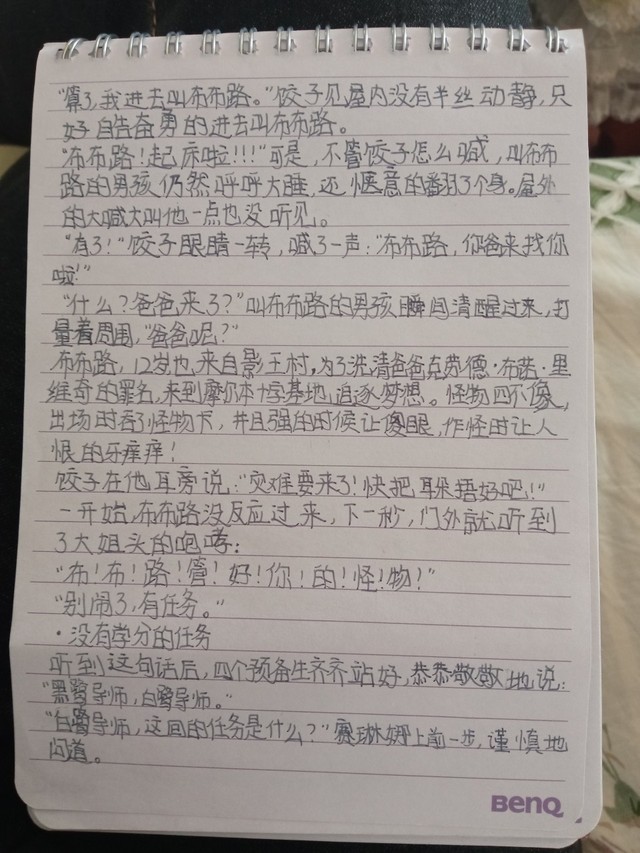 "算了，我进去叫布布路。"饺子见屋内没有半丝动静，只
好自告奋勇的进去叫布布路。
"布布路！起床啦!!!"可是，不管饺子怎么喊，叫布布
路的男孩仍然呼呼大睡，还惬意的翻了个身。屋外
的大喊大叫他一点也没听见。
"有了！"饺子眼睛一转，喊了一声："布布路，你爸来找你
啦！"
"什么？爸爸来了？"叫布布路的男孩瞬间清醒过来，打
量着周围，"爸爸呢？"
布布路，12岁也来自影王村，为了洗清爸爸克劳德·布诺·里
维奇的罪名，来到摩尔本十字基地，追逐梦想。怪物四不像，
出场时吞了怪物卡，并且强的时候让傻眼，作怪时让人
恨的牙痒痒！
饺子在他耳旁说："灾难要来了！快把耳朵捂好吧！"
一开始，布布路没反应过来，下一秒，门外就听到
了大姐头的咆哮：
"布！布！路！管！好！你！的！怪！物！"
"别闹了，有任务。"
·没有学分的任务
听到这句话后，四个预备生齐齐站好，恭恭敬敬地说：
"黑鹭导师，白鹭导师。"
"白鹭导师，这回的任务是什么？"赛琳娜上前一步，谨慎地
问道。
BenQ